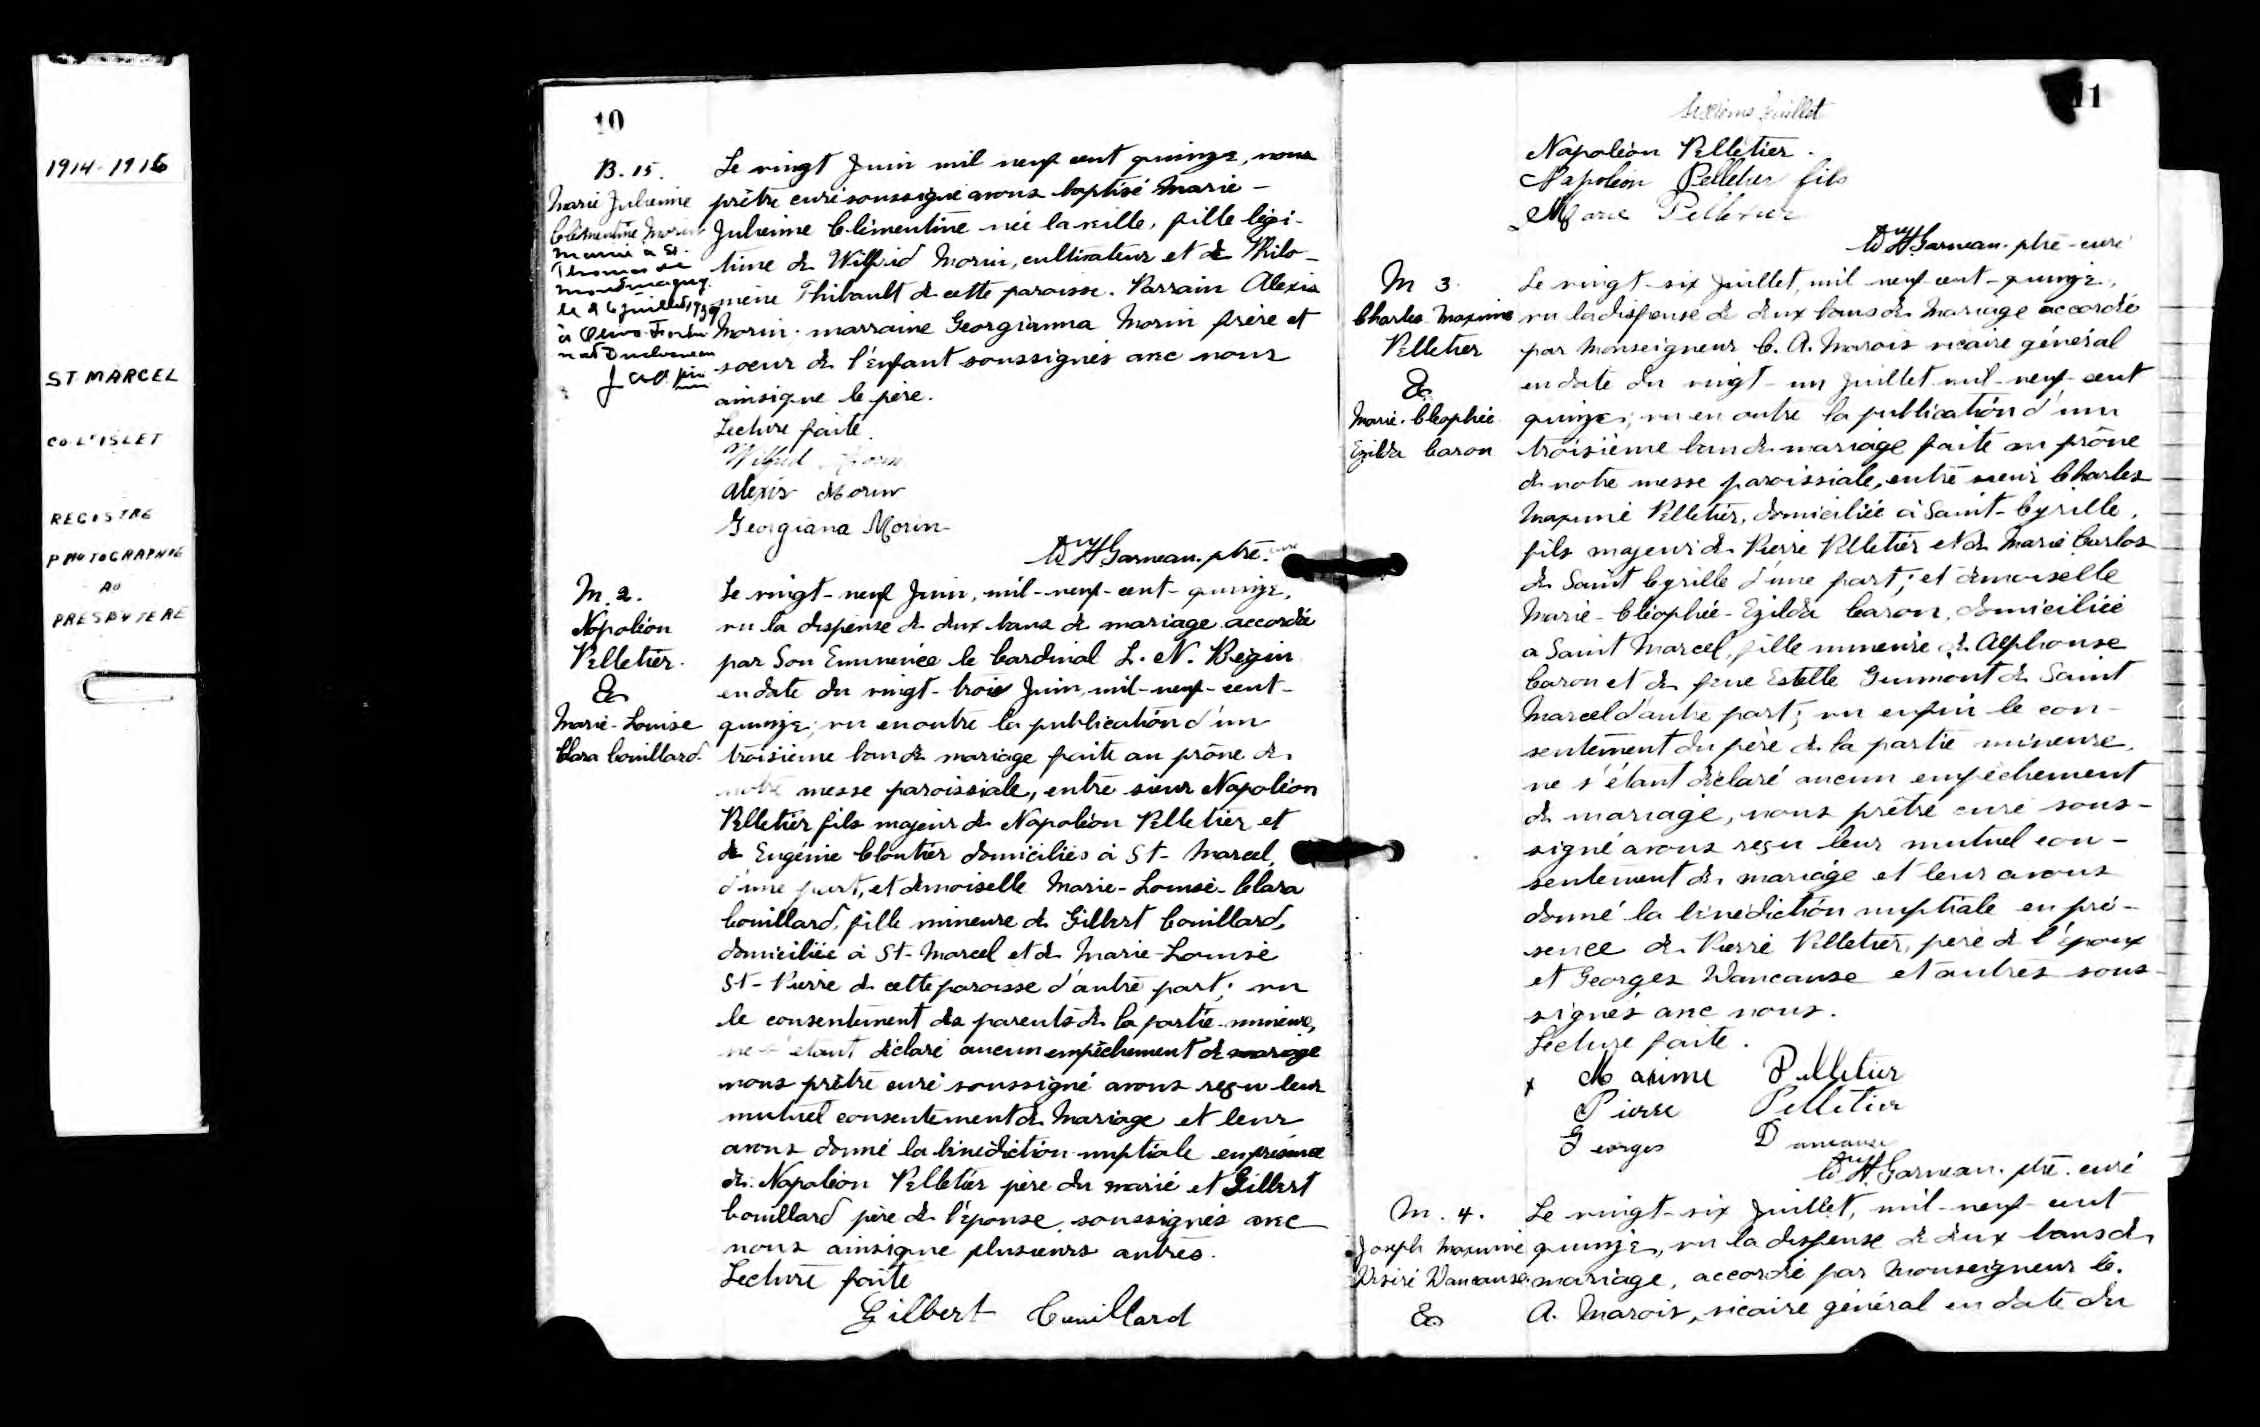 1914-1916
ST MARCEL
CO L'ISLET
REGISTRE
PHOTOGRAPHIE
AU
PRESBYTERE
10
B. 15.
Marie Julienne
Clémentine Morin
Mariée à St.
Thomas de
Montmagny
le 26 juillet 1939
à
Le vingt Juin mil neuf cent quinze, nous
prêtre curé soussigné avons baptisé Marie-
Julienne Clémentine née la veille, fille légi-
time de Wilfrid Morin, cultivateur et de Philo-
mène Thibault de cette paroisse. Parrain Alexis
Morin. marraine Georgianna Morin frère et
soeur de l'enfant soussignés avec nous
ainsique le père.
Lecture faite.
Wilfrid Morin
Alexis Morin
Georgiana Morin
H Garneau. ptre. curé
M. 2.
Napoléon
Pelletier.
&
Marie-Louise
Clara Couillard.
Le vingt-neuf Juin, mil-neuf-cent-quinze,
vu la dispense de deux bans de mariage accordée
par Son Eminence le Cardinal L. N. Bégin
en date du vingt-trois Juin, mil-neuf-cent-
quinze; vu en outre la publication d'un
troisième ban de mariage faite au prône de
notre messe paroissiale, entre sieur Napoléon
Pelletier fils majeur de Napoléon Pelletier et
de Eugénie Cloutier domiciliés à St-Marcel,
d'une part, et demoiselle Marie-Louise-Clara
Couillard, fille mineure de Gilbert Couillard,
domiciliée à St-Marcel et de Marie-Louise
St-Pierre de cette paroisse d'autre part; vu
le consentement des parents de la partie mineure,
ne s'étant déclaré aucun empêchement de mariage
nous prêtre curé soussigné avons reçu leur
mutuel consentement de Mariage et leur
avons donné la bénédiction nuptiale en présence
de Napoléon Pelletier père du marié et Gilbert
Couillard père de l'épouse, soussignés avec
nous ainsique plusieurs autres.
Lecture faite
Gilbert Couillard
11
Sixième feuillet
Napoléon Pelletier.
Napoléon Pelletier fils
Marie Pelletier
H Garneau. ptre-curé
M 3.
Charles Maxime
Pelletier
&
Marie. Cléophée.
Ezilda Caron
Le vingt-six Juillet, mil-neuf-cent-quinze,
vu la dispense de deux bans de Mariage accordée
par Monseigneur C. A. Marois vicaire général
en date du vingt-un Juillet mil-neuf-cent
quinze; vu en outre la publication d'un
troisième ban de mariage faite au prône
de notre messe paroissiale, entre sieur Charles
Maxime Pelletier, domiciliée à Saint-Cyrille,
fils majeur de Pierre Pelletier et de Marie Carlos
de Saint Cyrille d'une part; et demoiselle
Marie-Cléophée-Ezilda Caron, domiciliée
a Saint Marcel, fille mineure de Alphonse
Caron et de feue Estelle Guimont de Saint
Marcel d'autre part; vu enfin le con-
sentement du père de la partie mineure,
ne s'étant déclaré aucun empêchement
de mariage, nous prêtre curé sous-
signé avons reçu leur mutuel con-
sentement de mariage et leur avons
donné la bénédiction nuptiale en pré-
sence de Pierre Pelletier, père de l'époux
et Georges Dancause et autres sous-
signés avec nous.
Lecture faite.
x Maxime Pelletier
Pierre Pelletier
Georges Dancause
H. Garneau. ptre. curé
M. 4.
Joseph Maxime
Désiré Dancause
&
Le vingt-six Juillet, mil-neuf-cent
quinze, vu la dispense de deux bans de
mariage, accordée par Monseigneur C.
A. Marois, vicaire général en date du